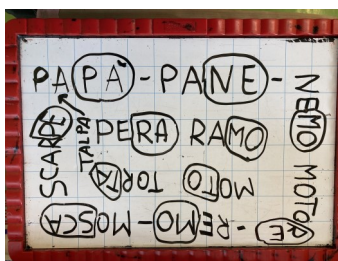 PAPÀ - PANE -
NEMO MOTORE
- REMO - MOSCA
SCARPE
PERA RAMO
MOTO TORTA
TALPA